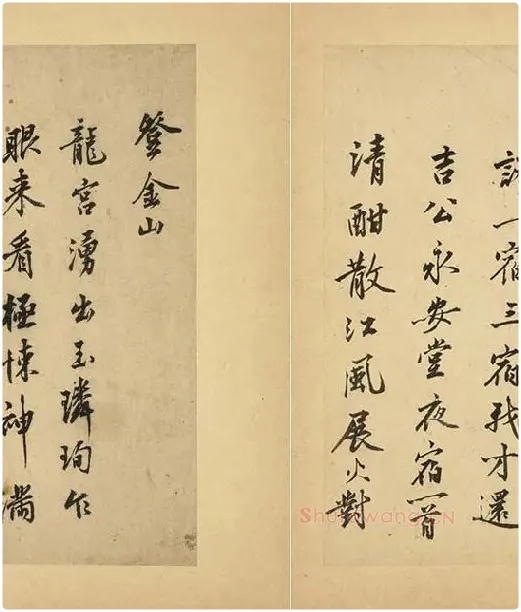 一宿三宿我才還
吉公永安堂夜宿一首
清酣散江風展火對
登金山
龍宮湧出玉璘珣乍
眼来看極悚神滿